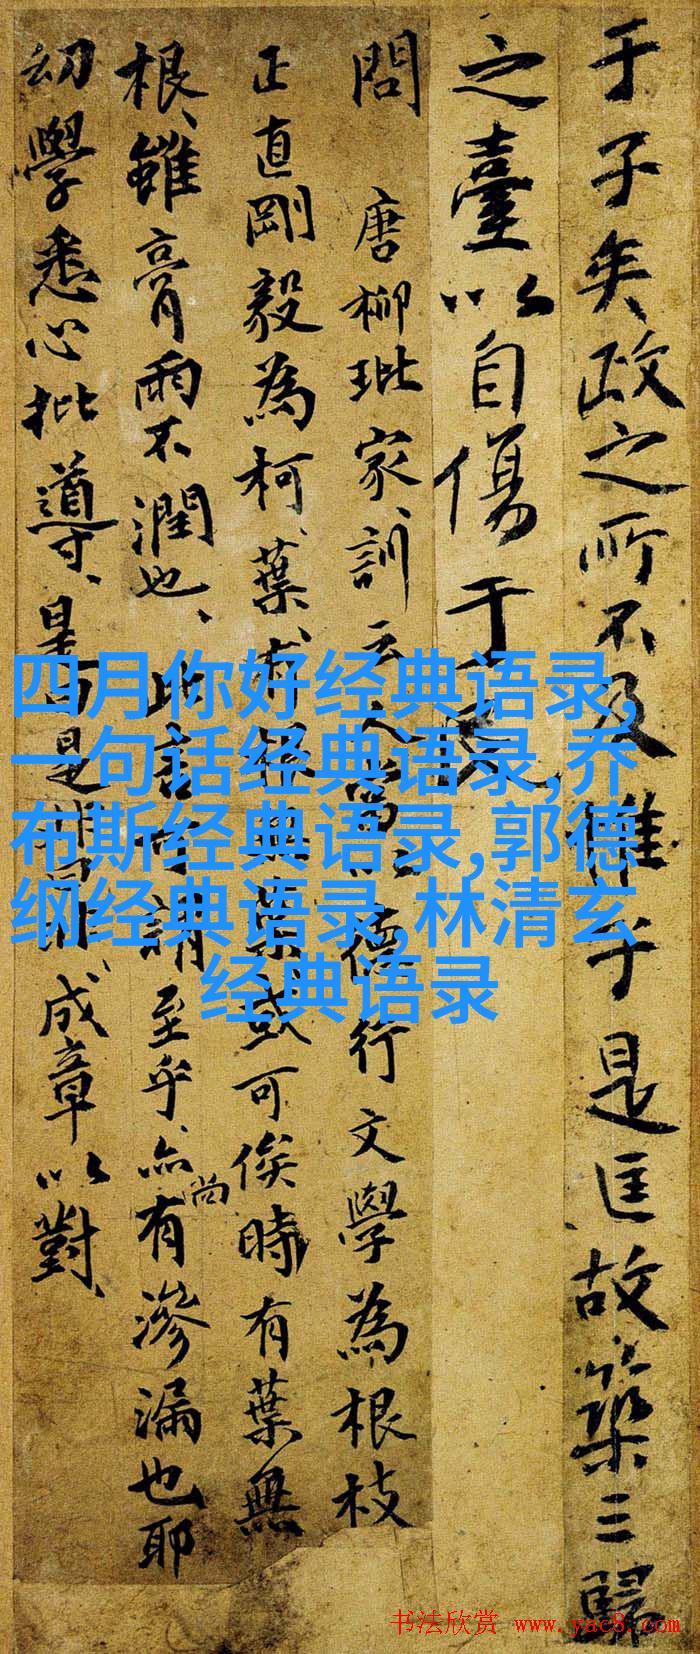 于子矣政之所不及于是匡故築三歸
之臺以自傷于
問 唐柳玭家訓云德行文學為根枝
正直剛毅為柯、葉有根無葉或可俟時有葉無
根、雖膏雨不潤也、此言可謂至乎、亦尚有滲漏也耶
幼學悉心批導、是成章以對、
四月你好经典语录,
一句话经典语录,乔
布斯经典语录,郭德
纲经典语录,林清玄
经典语录
书法欣赏 www.yac8.com